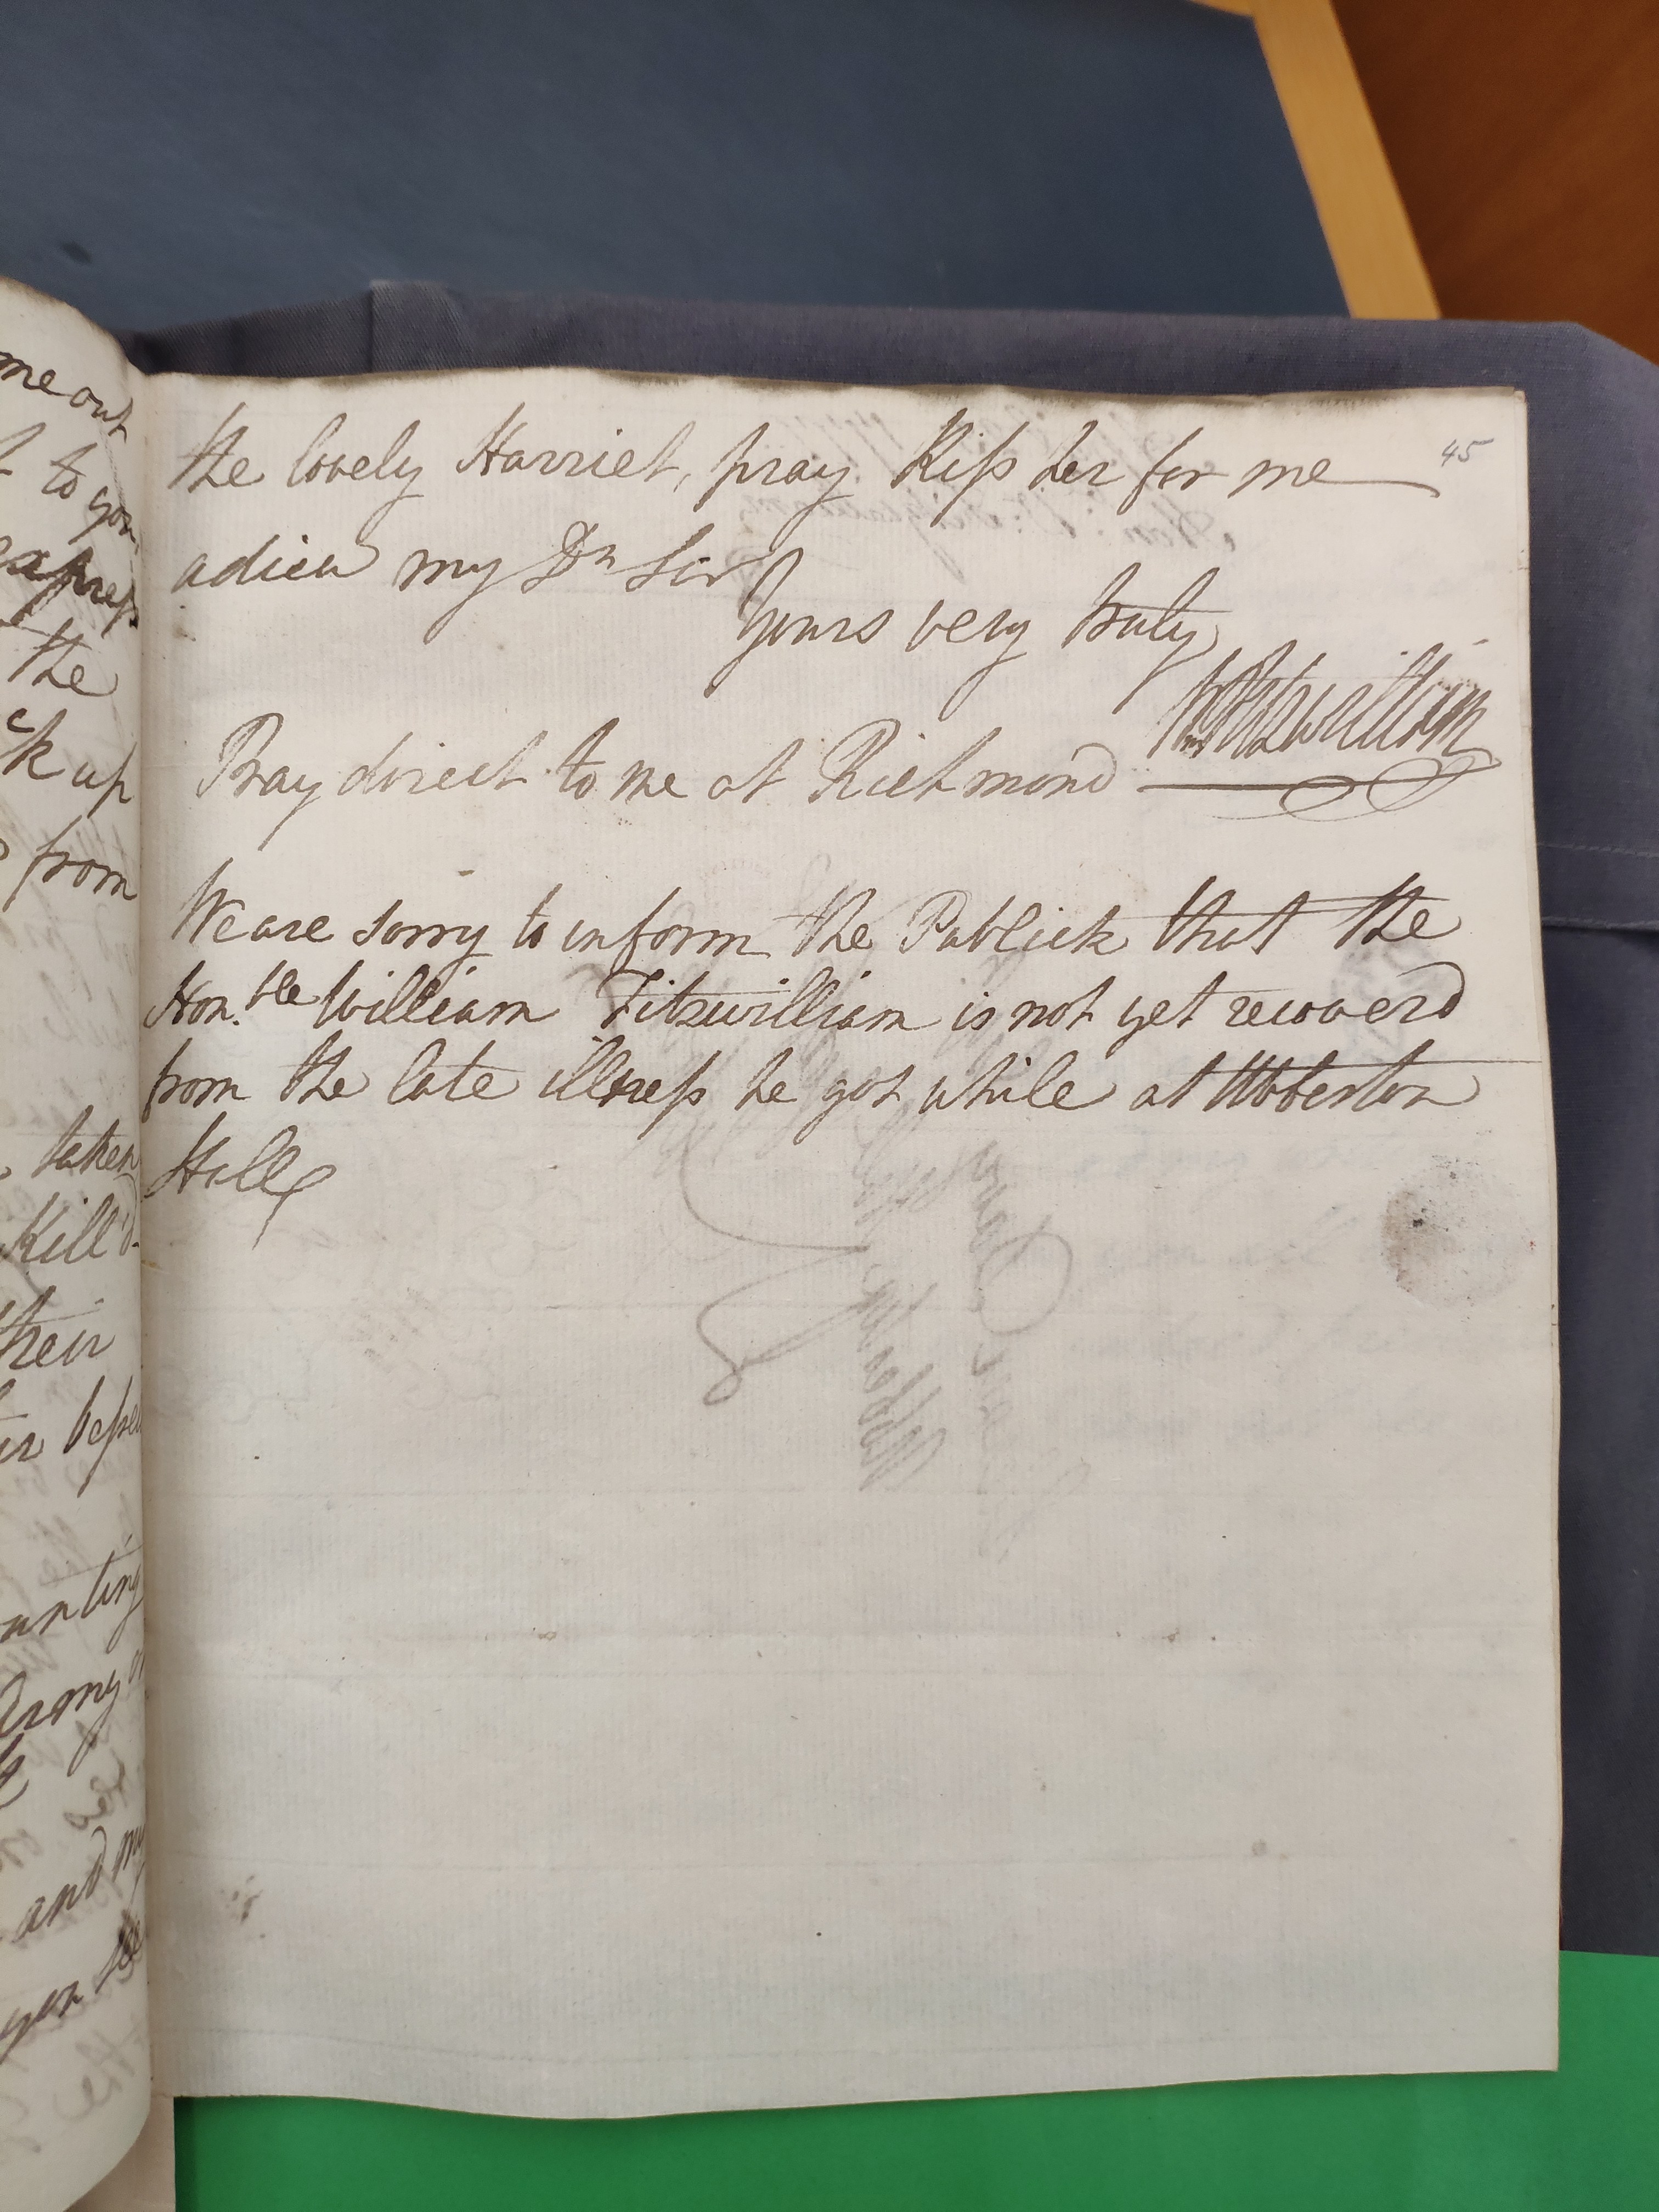 45
the lovely Harriet, pray Kiss her for me
adieu my Dr Sir
Yours very truly
Wm Fitzwilliam
Pray direct to me at Richmond
We are sorry to inform the Publick that the
Hon.ble William Fitzwilliam is not yet recoverd
from the late illness he got while at Abberton
Hall
me out
to you
express
the
ck up
from
taken
Kill'd
their
unting
Army
and my
you